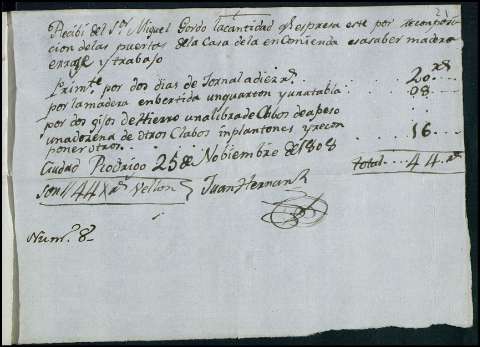 Recibi del Sor. Miguel Gordo la cantidad qe. espresa este por reconposi
cion de las puertas de la Casa de la enComienda es asaber madera
erraje y trabajo
Primte. por dos dias de Jornal a diez rs. 20 rs
por la madera enbertida un quarton y una tabla 08
por dos gijos de Hierro una libra de Clabos de apeso
una dozena de otros Clabos inplantones y recon
poner otros 16
Ciudad Rodrigo 25 de Nobiembre de 1808 total 44 rs
son 44 rs Vellon Juan Hernanz
Numo. 8